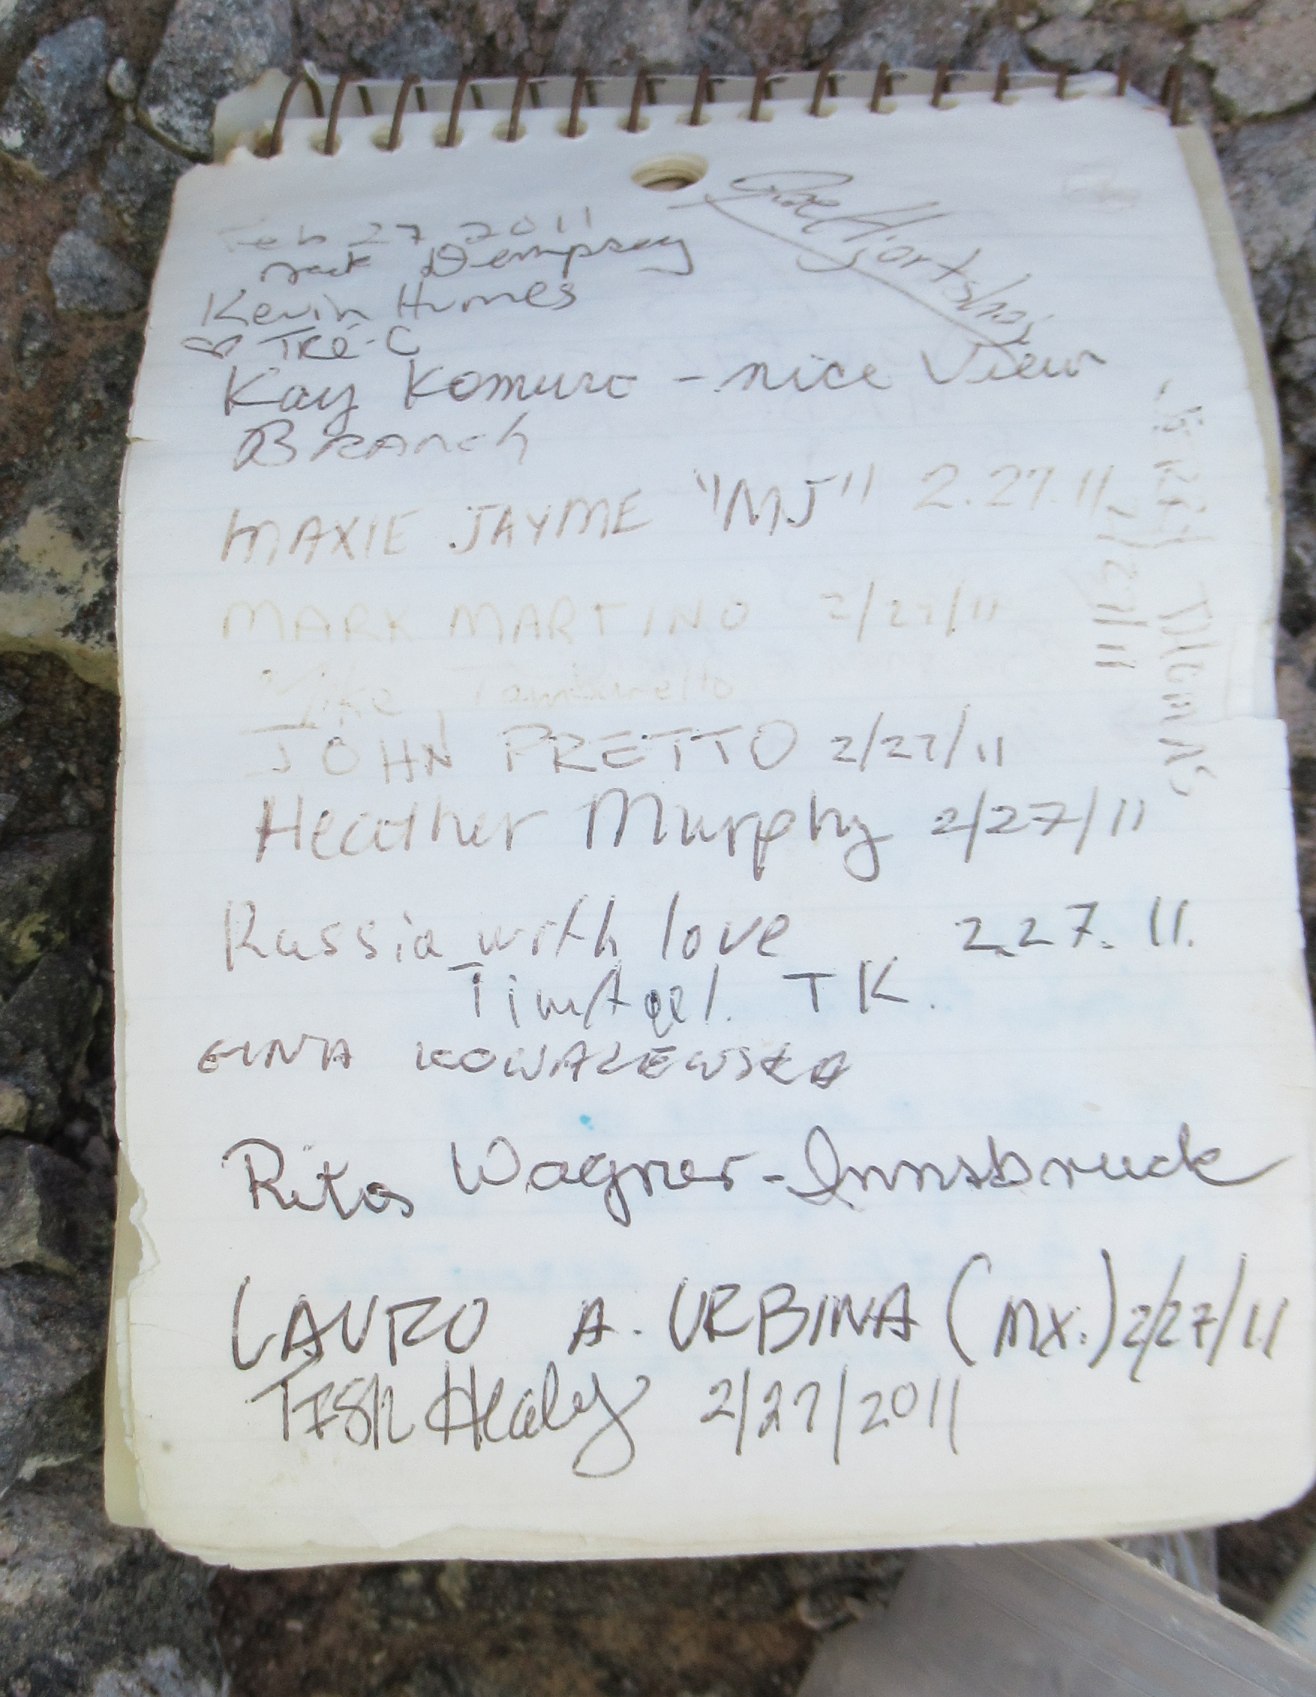 Feb 27 2011
Dempsey
Kevin Humes
♡ Tre-C
Kay Komuro - nice View
Branch
MAXIE JAYME "MJ" 2.27.11
MARK MARTINO 2/27/11
Mike
JOHN PRETTO 2/27/11
Heather Murphy 2/27/11
Russia with love 2.27.11.
TK.
KOWALEWSKA
Rita Wagner-Innsbruck
LAURO A. URBINA (MX.) 2/27/11
Healy 2/27/2011
THOMAS
2/27/11